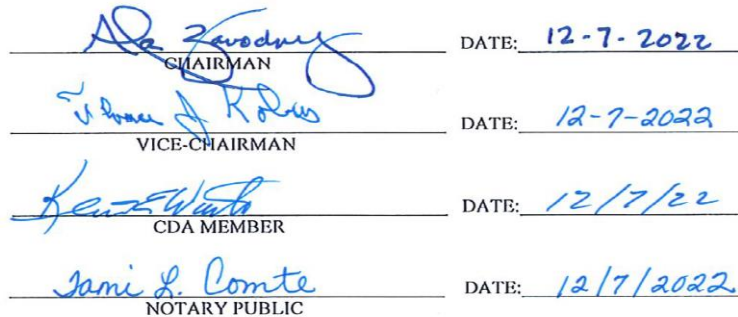 Zavodny DATE: 12-7-2022
CHAIRMAN
J. Kobus DATE: 12-7-2022
VICE-CHAIRMAN
DATE: 12/7/22
CDA MEMBER
Tami L. Comte DATE: 12/7/2022
NOTARY PUBLIC